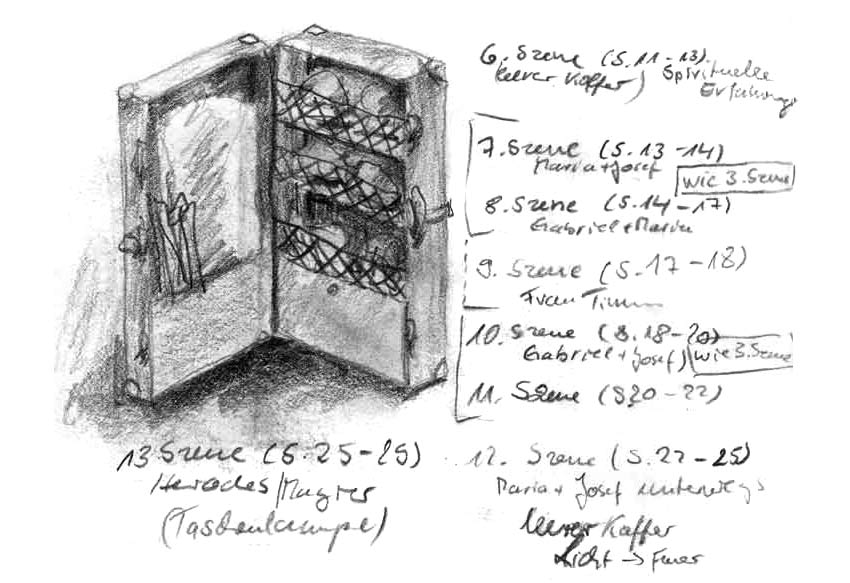 6. Szene (S. 11-13)
leerer Koffer) Spirituelle
Erfahrung
7. Szene (S. 13-14)
Maria + Josef
wie 3. Szene
8. Szene (S. 14-17)
Gabriel + Maria
9. Szene (S. 17-18)
Frau Timm
10. Szene (S. 18-20)
Gabriel + Josef) wie 3. Szene
11. Szene (S 20-22)
13 Szene (S. 25-29)
Herodes/Magier
(Taschenlampe)
12. Szene (S. 22-25)
Maria + Josef unterwegs
leerer Koffer
Licht → Feuer